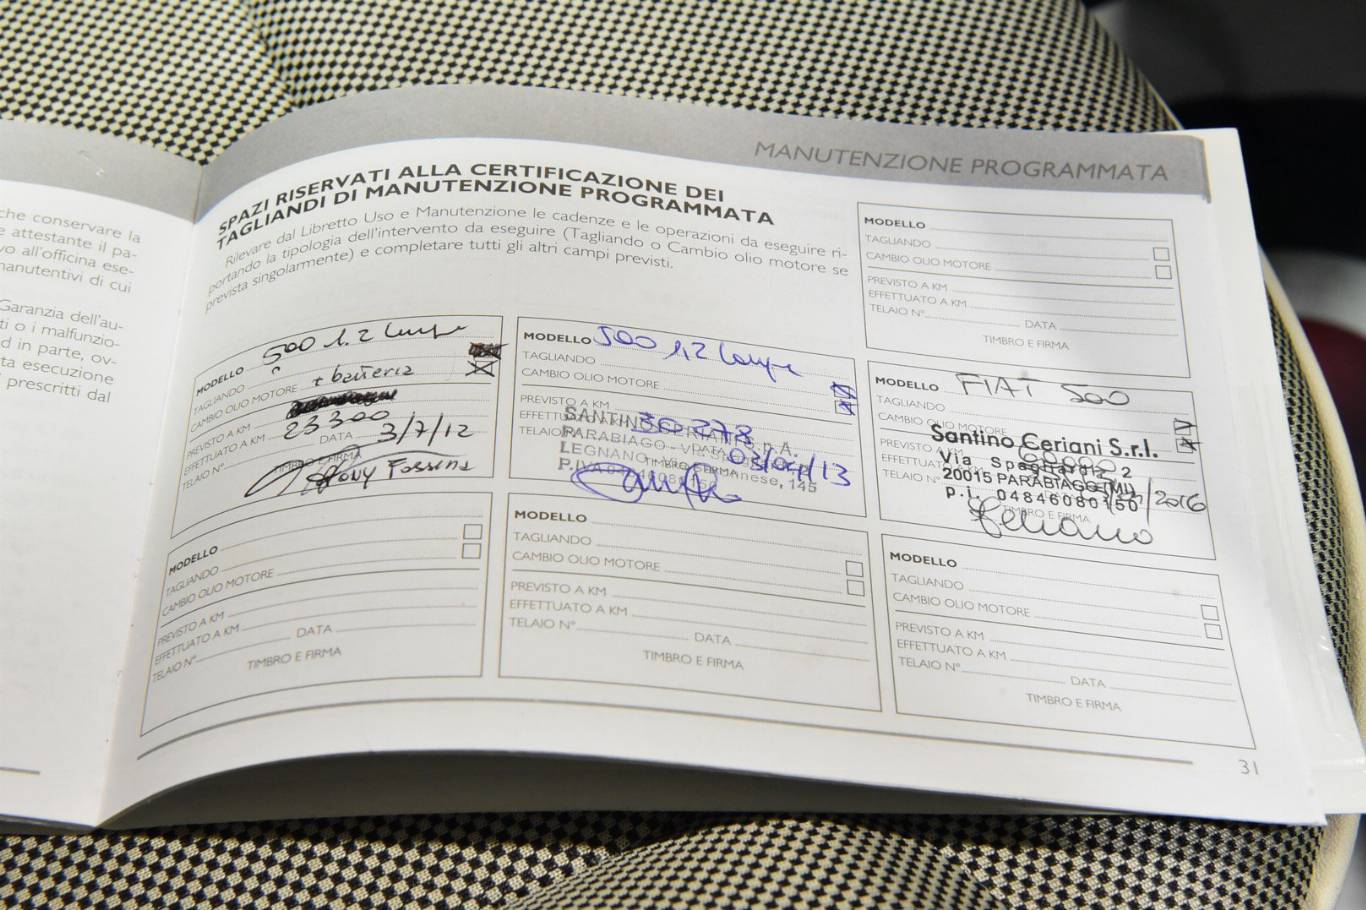 che conservare la
e attestante il pa-
vo all'officina ese-
manutentivi di cui
Garanzia dell'au-
ti o i malfunzio-
d in parte, ov-
ta esecuzione
prescritti dal
MANUTENZIONE PROGRAMMATA
SPAZI RISERVATI ALLA CERTIFICAZIONE DEI
TAGLIANDI DI MANUTENZIONE PROGRAMMATA
Rilevare dal Libretto Uso e Manutenzione le cadenze e le operazioni da eseguire ri-
portando la tipologia dell'intervento da eseguire (Tagliando o Cambio olio motore se
prevista singolarmente) e completare tutti gli altri campi previsti.
MODELLO 500 1.2
TAGLIANDO
CAMBIO OLIO MOTORE + batteria
PREVISTO A KM
EFFETTUATO A KM 23300
TELAIO N° DATA 3/7/12
TIMBRO E FIRMA
MODELLO 500 1,2
TAGLIANDO
CAMBIO OLIO MOTORE
PREVISTO A KM
SANTINO CERIANI S.p.A.
PARABIAGO
LEGNANO
DATA 03/04/13
TIMBRO E FIRMA
MODELLO
TAGLIANDO
CAMBIO OLIO MOTORE
PREVISTO A KM
EFFETTUATO A KM
TELAIO N° DATA
TIMBRO E FIRMA
MODELLO FIAT 500
TAGLIANDO
CAMBIO OLIO MOTORE
PREVISTO A KM
Santino Ceriani S.r.l.
Via 2
20015 PARABIAGO (MI)
P.I. 04846080150
2016
TIMBRO E FIRMA
MODELLO
TAGLIANDO
CAMBIO OLIO MOTORE
PREVISTO A KM
EFFETTUATO A KM
TELAIO N° DATA
TIMBRO E FIRMA
MODELLO
TAGLIANDO
CAMBIO OLIO MOTORE
PREVISTO A KM
EFFETTUATO A KM
TELAIO N° DATA
TIMBRO E FIRMA
MODELLO
TAGLIANDO
CAMBIO OLIO MOTORE
PREVISTO A KM
EFFETTUATO A KM
TELAIO N° DATA
TIMBRO E FIRMA
31